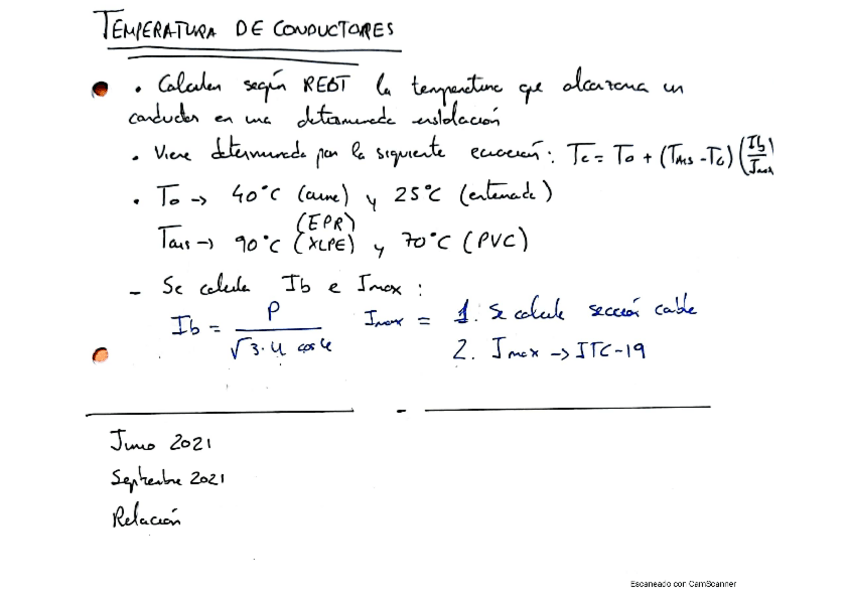 TEMPERATURA DE CONDUCTORES
• Calcular según REBT la temperatura que alcanzara un
conductor en una determinada instalación
• Viene determinada por la siguiente ecuación: Tc = To + (TAIS - To) (Ib/Imax)
• To -> 40°C (aire) y 25°C (enterrado)
(EPR)
Tais -> 90°C (XLPE) y 70°C (PVC)
- Se calcula Ib e Imax :
Ib = P / √3·U cosφ Imax = 1. Se calcula sección cable
2. Imax -> ITC-19
Junio 2021
Septiembre 2021
Relación
Escaneado con CamScanner